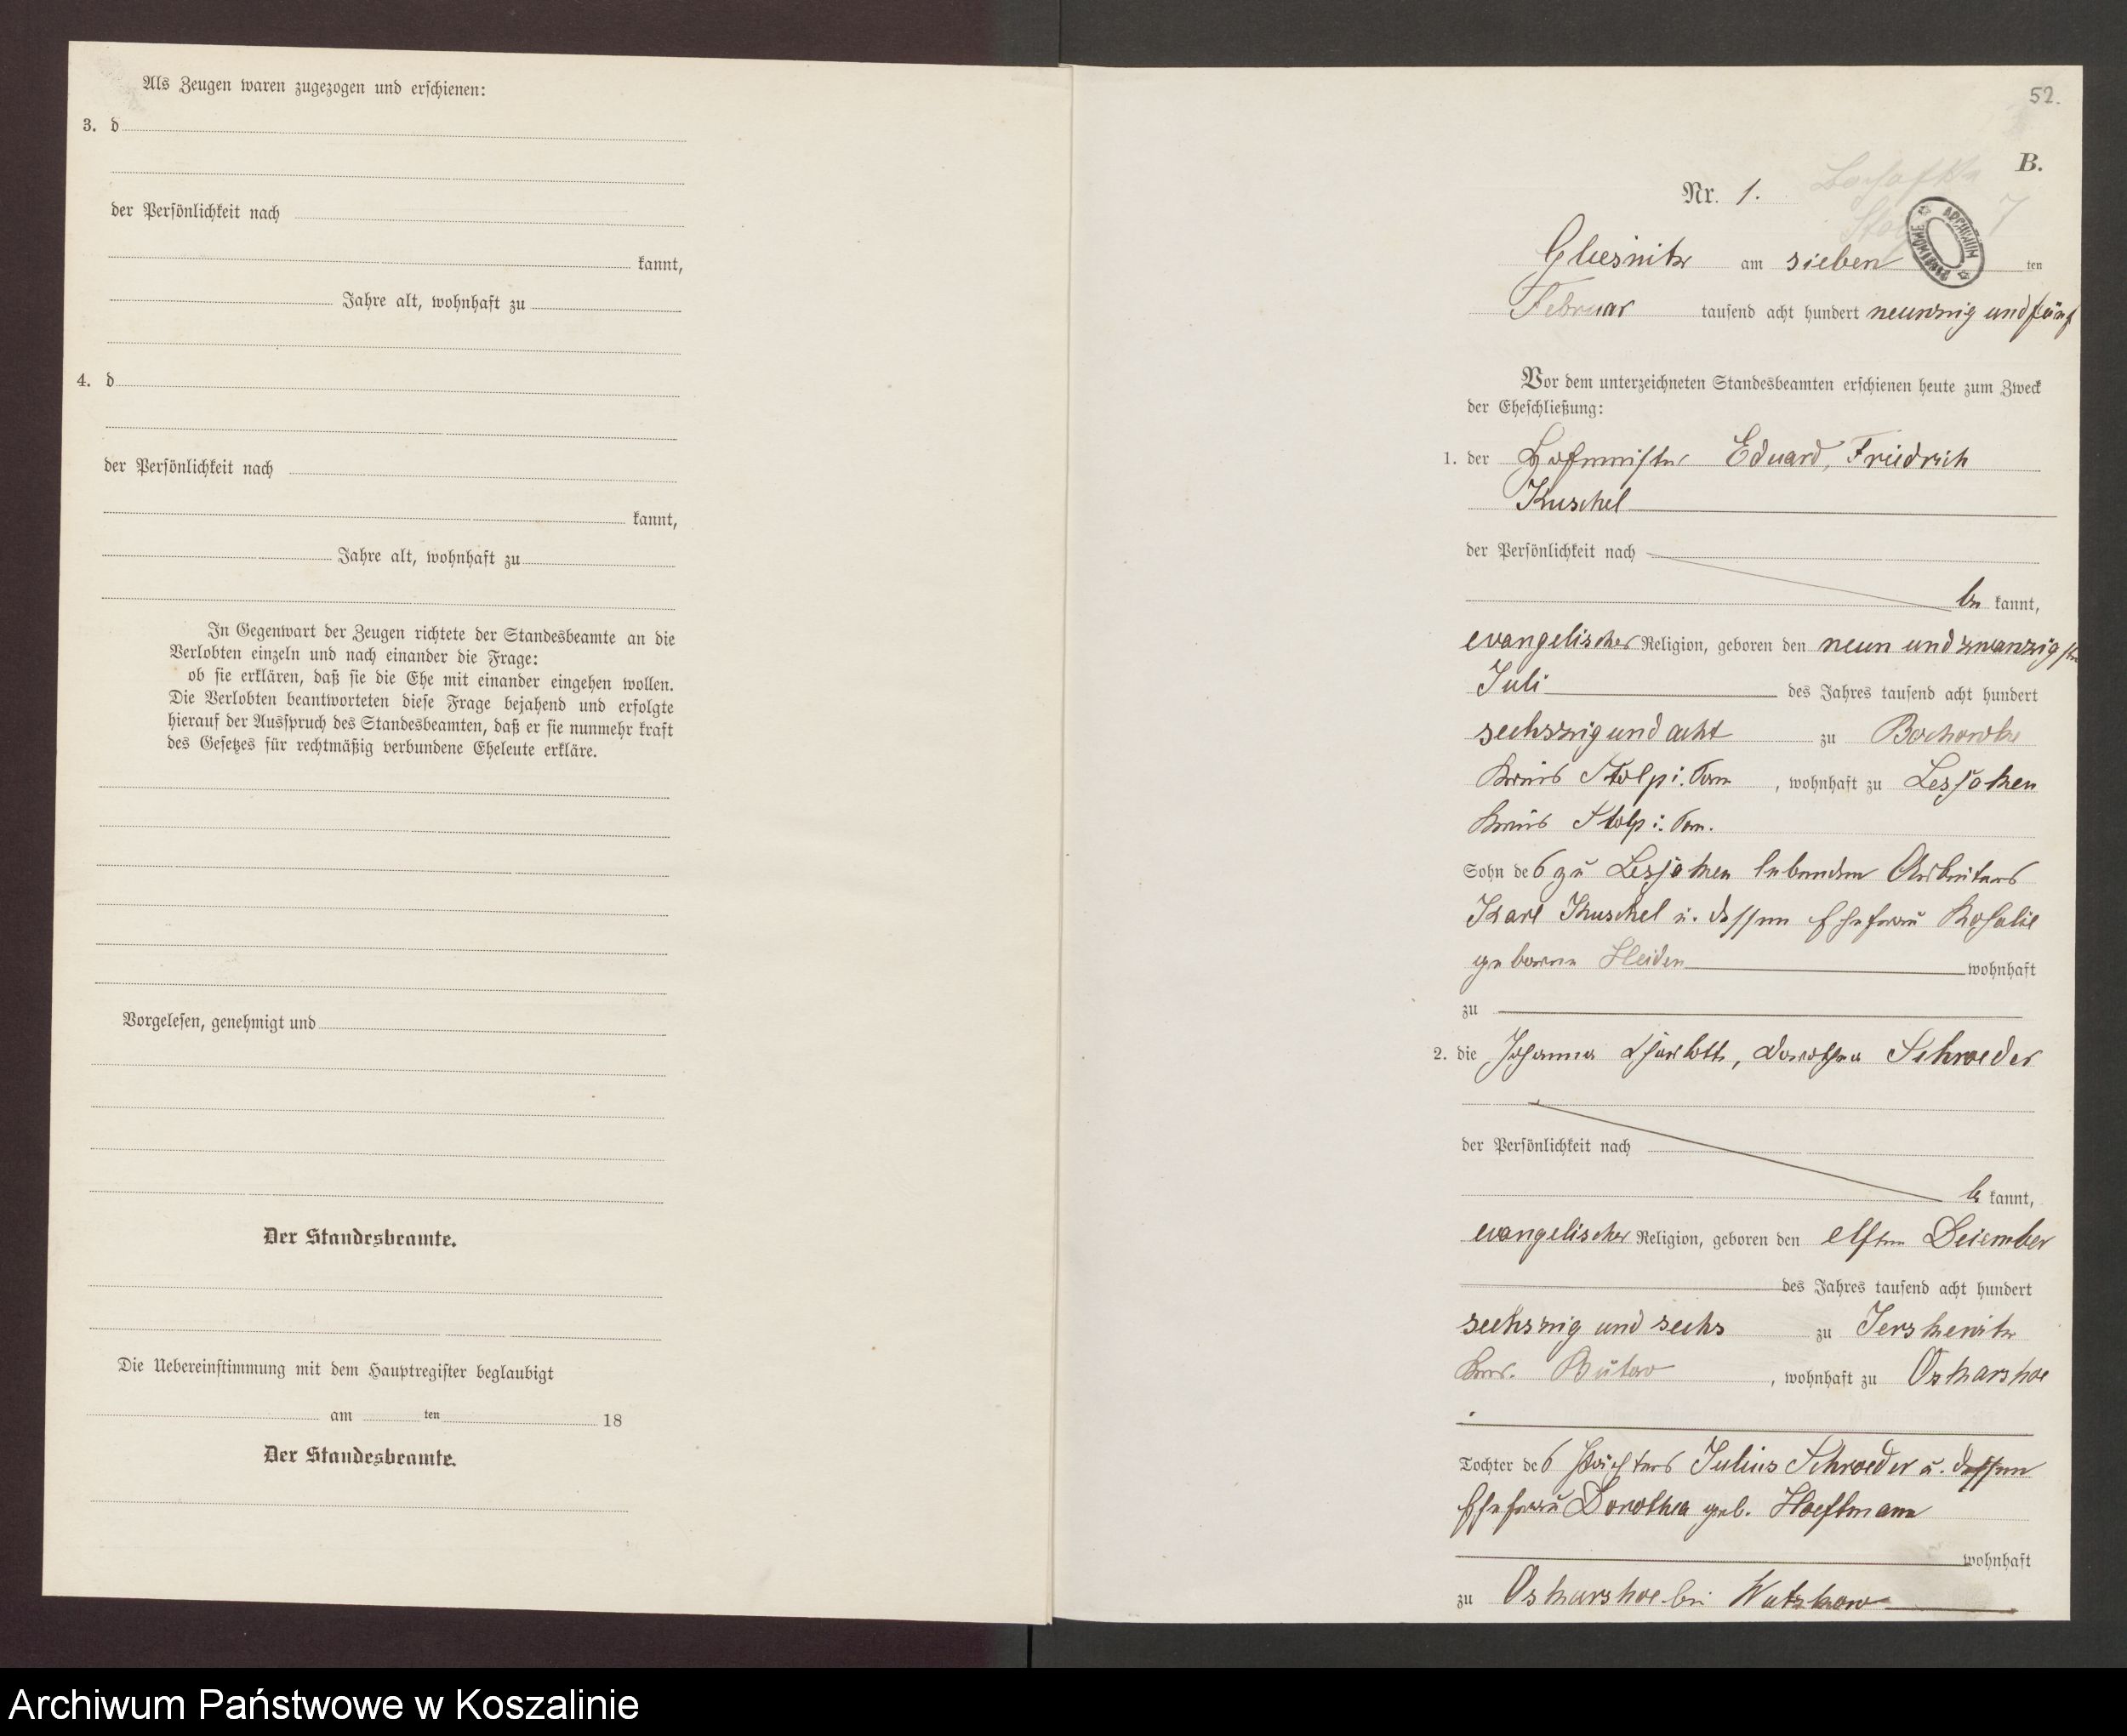 Als Zeugen waren zugezogen und erschienen:
3. d
der Persönlichkeit nach
kannt,
Jahre alt, wohnhaft zu
4. d
der Persönlichkeit nach
kannt,
Jahre alt, wohnhaft zu
In Gegenwart der Zeugen richtete der Standesbeamte an die
Verlobten einzeln und nach einander die Frage:
ob sie erklären, daß sie die Ehe mit einander eingehen wollen.
Die Verlobten beantworteten diese Frage bejahend und erfolgte
hierauf der Ausspruch des Standesbeamten, daß er sie nunmehr kraft
des Gesetzes für rechtmäßig verbundene Eheleute erkläre.
Vorgelesen, genehmigt und
Der Standesbeamte.
Die Uebereinstimmung mit dem Hauptregister beglaubigt
am ten 18
Der Standesbeamte.
52.
B.
Nr. 1.
7
ARCHIWUM
Gliesnitz am sieben ten
Februar tausend acht hundert neunzig und fünf
Vor dem unterzeichneten Standesbeamten erschienen heute zum Zweck
der Eheschließung:
1. der Hofmeister Eduard, Friedrich
Kuschel
der Persönlichkeit nach
be kannt,
evangelischer Religion, geboren den neun und zwanzigsten
Juli des Jahres tausend acht hundert
sechszig und acht zu Bochowke
Kreis Stolp i. Pom , wohnhaft zu Lesjaken
Kreis Stolp i. Pom.
Sohn des zu Lesjaken lebenden Arbeiters
Karl Kuschel u. dessen Ehefrau Rosalie
geborne Heiden wohnhaft
zu
2. die Johanna Charlotte, Dorothea Schroeder
der Persönlichkeit nach
be kannt,
evangelischer Religion, geboren den elften Dezember
des Jahres tausend acht hundert
sechszig und sechs zu Jerskewitz
Krs. Bütow , wohnhaft zu Oskarshoe
Tochter des Pächters Julius Schroeder u. dessen
Ehefrau Dorothea geb. Hoeftmann
wohnhaft
zu Oskarshoe bei Wutzkow
Archiwum Państwowe w Koszalinie